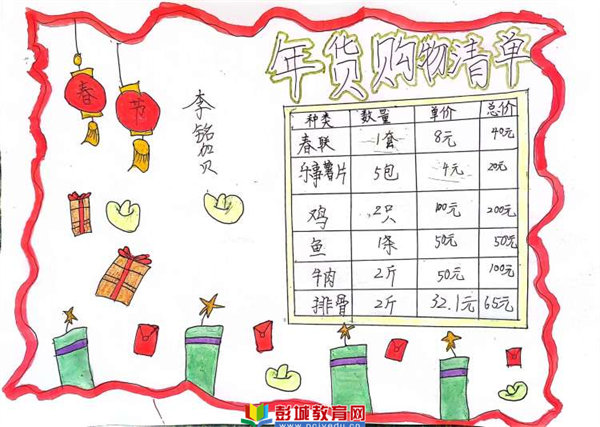 年货购物清单
春节
李铭贝
种类 数量 单价 总价
春联 1套 8元 40元
乐事薯片 5包 4元 20元
鸡 2只 100元 200元
鱼 1条 50元 50元
牛肉 2斤 50元 100元
排骨 2斤 32.1元 65元
彭城教育网
www.pcjyedu.cn